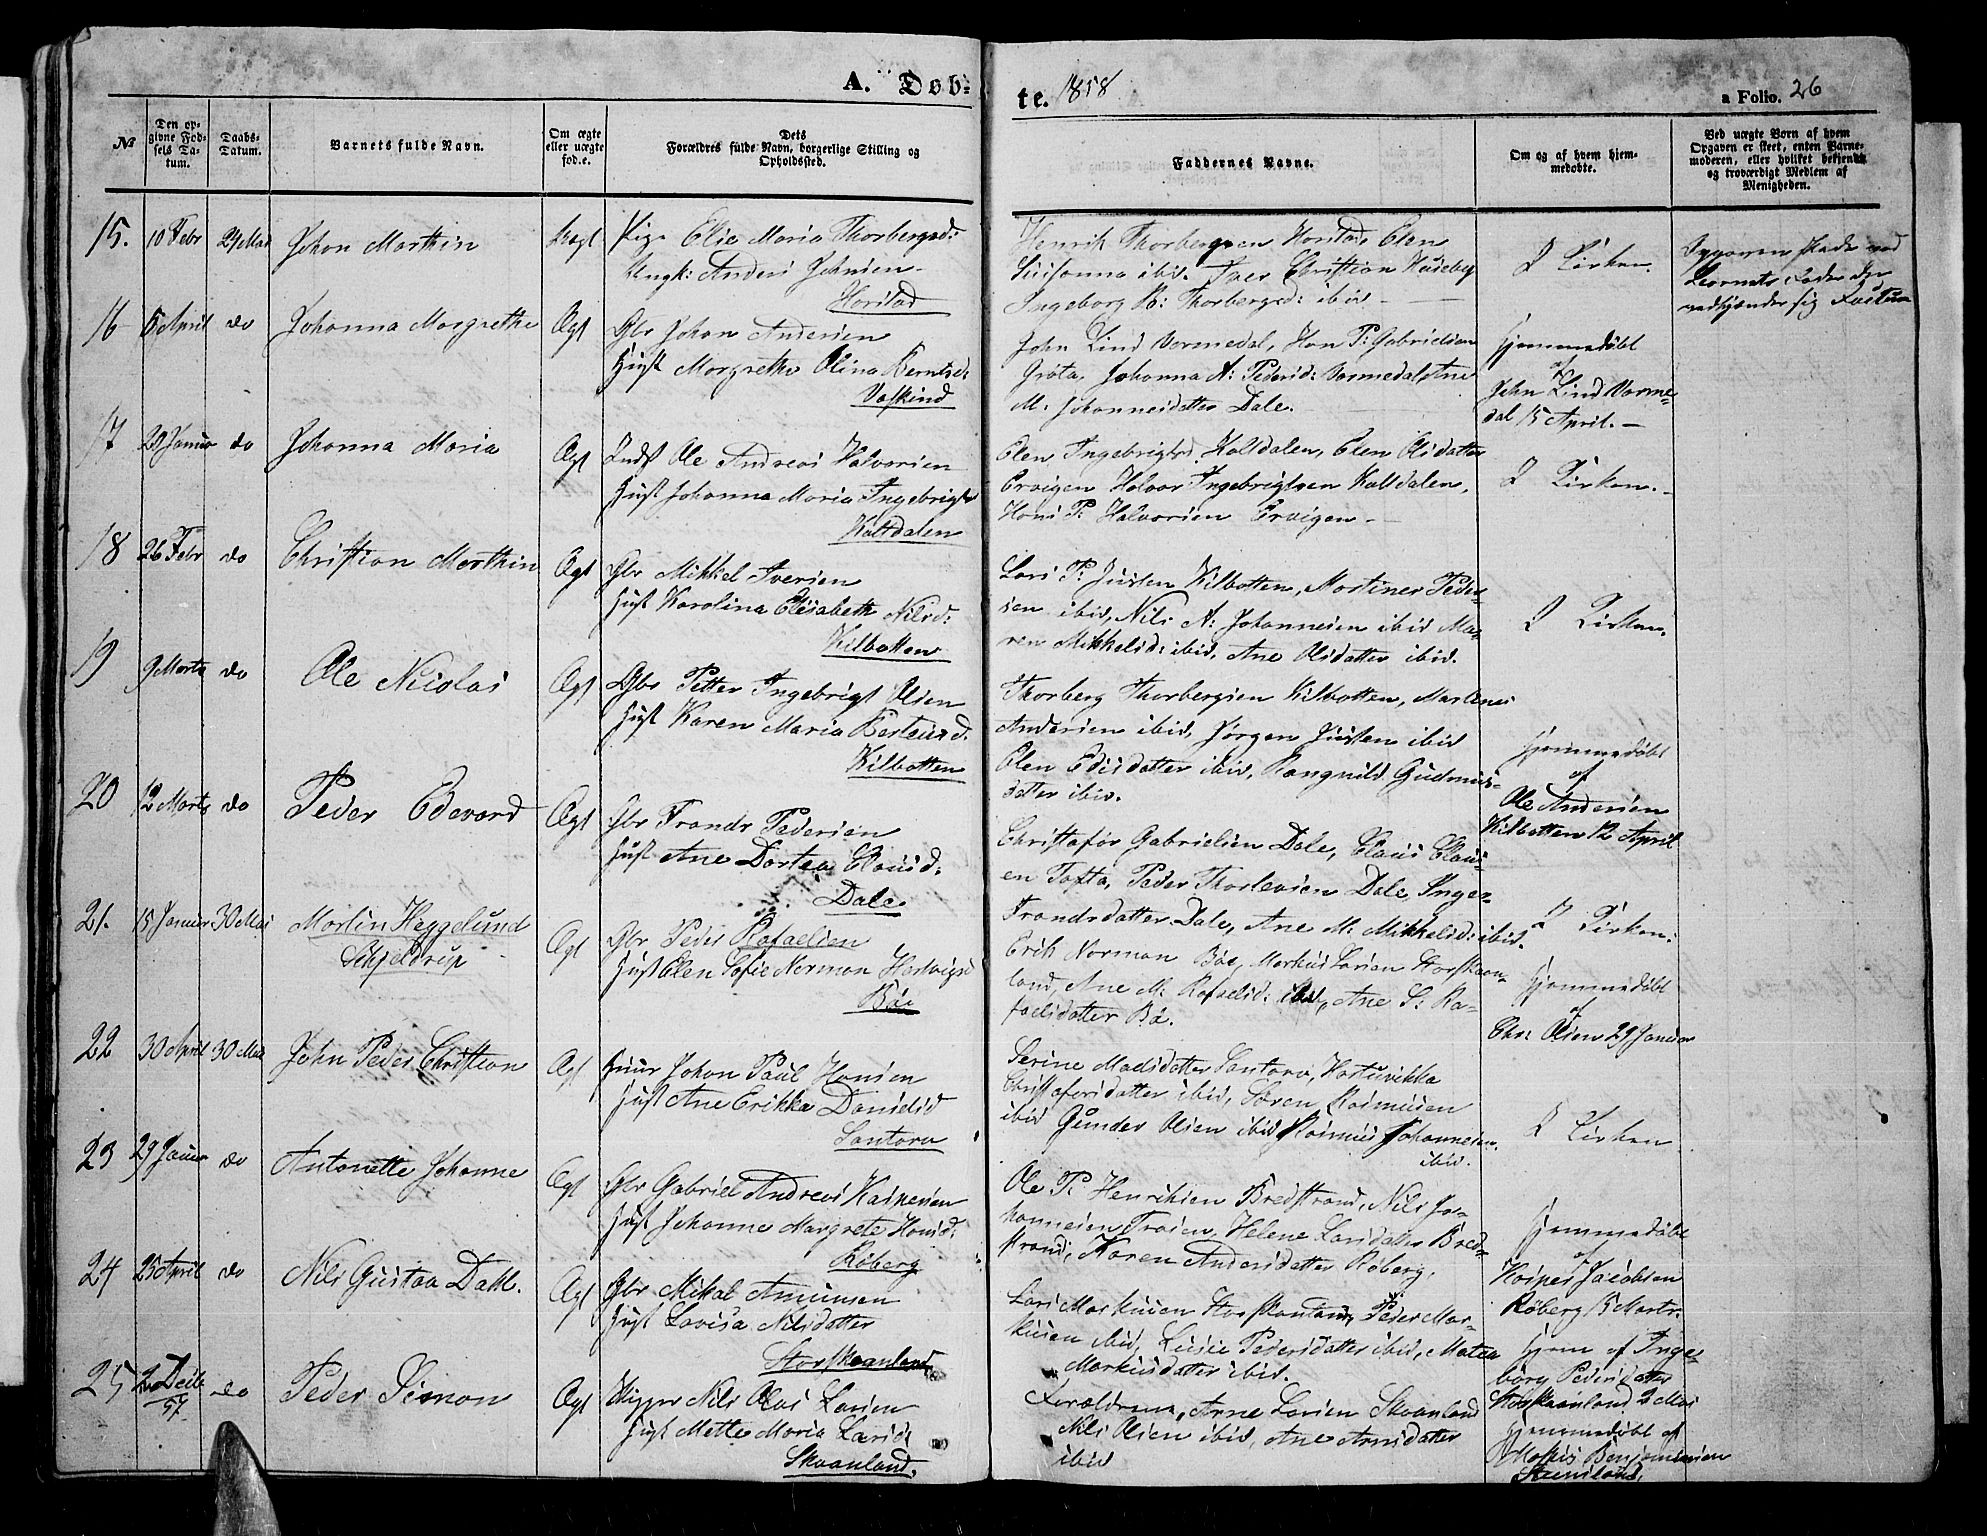 A. Døb-
te. 1858
a Folio. 26
№
Den op-
givne Fød-
sels Da-
tum.
Daabs-
Datum.
Barnets fulde Navn.
Om ægte
eller uægte
fød.e.
Dets
Forældres fulde Navn, borgerlige Stilling og
Opholdssted.
Faddernes Navne.
Om og af hvem hjem-
medøbte.
Ved uægte Børn af hvem
Opgaven er skeet, enten Barne-
moderen, eller hvilket bekjendt
og troværdigt Medlem af
Menigheden.
15.
10 Febr
24 Mai
Johan Marthin
Uægt
Pige Elie Maria Thorbergsd:
Ungk: Anders Johnsen
Horstad
Henrik Thorbergsen Horstad, Elen
Susanna ibid. Iver Christian Huseby
Ingeborg B: Thorbergsd: ibid
I Kirken.
Barnets Fader
16
5 April
do
Johanna Margrethe
Ægt
Gbr Johan Andersen
Hust Margrethe Olina Berntsd:
Vaskind
John Lind Vormedal, Han P: Gabrielsen
Grøta, Johanna A: Pedersd: Vormedal, Ane
M: Johannesdatter Dale.
Hjemmedøbt
af
John Lind Vorme-
dal 15 April.
17
29 Januar
do
Johanna Maria
Ægt
Inds Ole Andreas Halvorsen
Hust Johanna Maria Ingebrigts
Kaltdalen
Elen Ingebrigtsd. Kaltdalen, Elen Olsdatter
Ervigen Halvor Ingebrigtsen Kaltdalen,
Hans P: Halvorsen Ervigen
I Kirken.
18
26 Febr
do
Christian Marthin
Ægt
Gbr Mikkel Iversen
Hust Karolina Elisabeth Nilsd:
Kilbotten
Lars P: Justen Kilbotten, Martines Peder-
sen ibid, Nils A: Johannesen ibid Ma-
ren Mikkelsd: ibid, Ane Olsdatter ibid.
I Kirken.
19
9 Marts
do
Ole Nicolai
Ægt
Gbr Petter Ingebrigt Olsen
Hust Karen Maria Berteusd.
Kilbotten
Thorberg Thorbergsen Kilbotten, Martenes
Andersen ibid, Jørgen Justen ibid
Elen Edisdatter ibid, Rangnild Gudmus-
datter ibid.
Hjemmedøbt
af
Ole Andersen
Kilbotten 12 April
20
12 Marts
do
Peder Edevard
Ægt
Gbr Trands Pedersen
Hust Ane Dortea Clausd.
Dale
Christafor Gabrielsen Dale, Claus Claus-
en Tofta, Peder Thorlevsen Dale, Inger
Trandsdatter Dale, Ane M: Mikkelsd: ibid.
I Kirken.
21.
15 Januar
30 Mai
Martin Heggelund
Schjeldrup
Ægt
Gbr Peder Rafaelsen
Hust Elen Sofie Norman Hedvigsd
Bøe
Erik Norman Bøe, Markus Larsen Storskaan-
land, Ane M: Rafaelsd: ibid, Ane S: Ra-
faelsdatter Bø.
Hjemmedøbt
af
Chr: Olsen 29 Januar
22
30 April
30 Mai
John Peder Christian
Ægt
Huus Johan Paul Hansen
Hust Ane Erikka Danielsd
Santorv
Serine Madsdatter Santorv, Hartvikka
Christofersdatter ibid, Søren Rasmusen
ibid Gunder Olsen ibid, Rasmus Johannesen
ibid.
I Kirken
23
29 Januar
do
Antonette Johanne
Ægt
Gbr Gabriel Andreas Kaspersen
Hust Johanne Margrete Hansd:
Røberg
Ole P: Henriksen Bredstrand, Nils Jo-
hannesen Traien, Helene Larsdatter Bred-
strand, Karen Andersdatter Røberg,
Hjemmedøbt
af
Kasper Jacobsen
Røberg 15 Marts.
24
25 April
do
Nils Gustav Dahl.
Ægt
Gbr Mikal Amunsen
Hust Lovisa Nilsdatter
Storskaanland
Lars Markusen Storskaanland, Peder Mar-
kusen ibid, Lusie Pedersdatter ibid, Maten
Markusdatter ibid.
Hjem af Inge-
børg Pedersdatter
Storskaanland 2 Mai
25
2 Decbr
57
do
Peder Simon
Ægt
Nils Olai Larsen
Hust Mette Maria Larsd:
Skaanland.
Forældrene, Arne Larsen Skaanland
Nils Olsen ibid, Ane Arnsdatter
ibid
Hjemmedøbt af
Benjaminsen